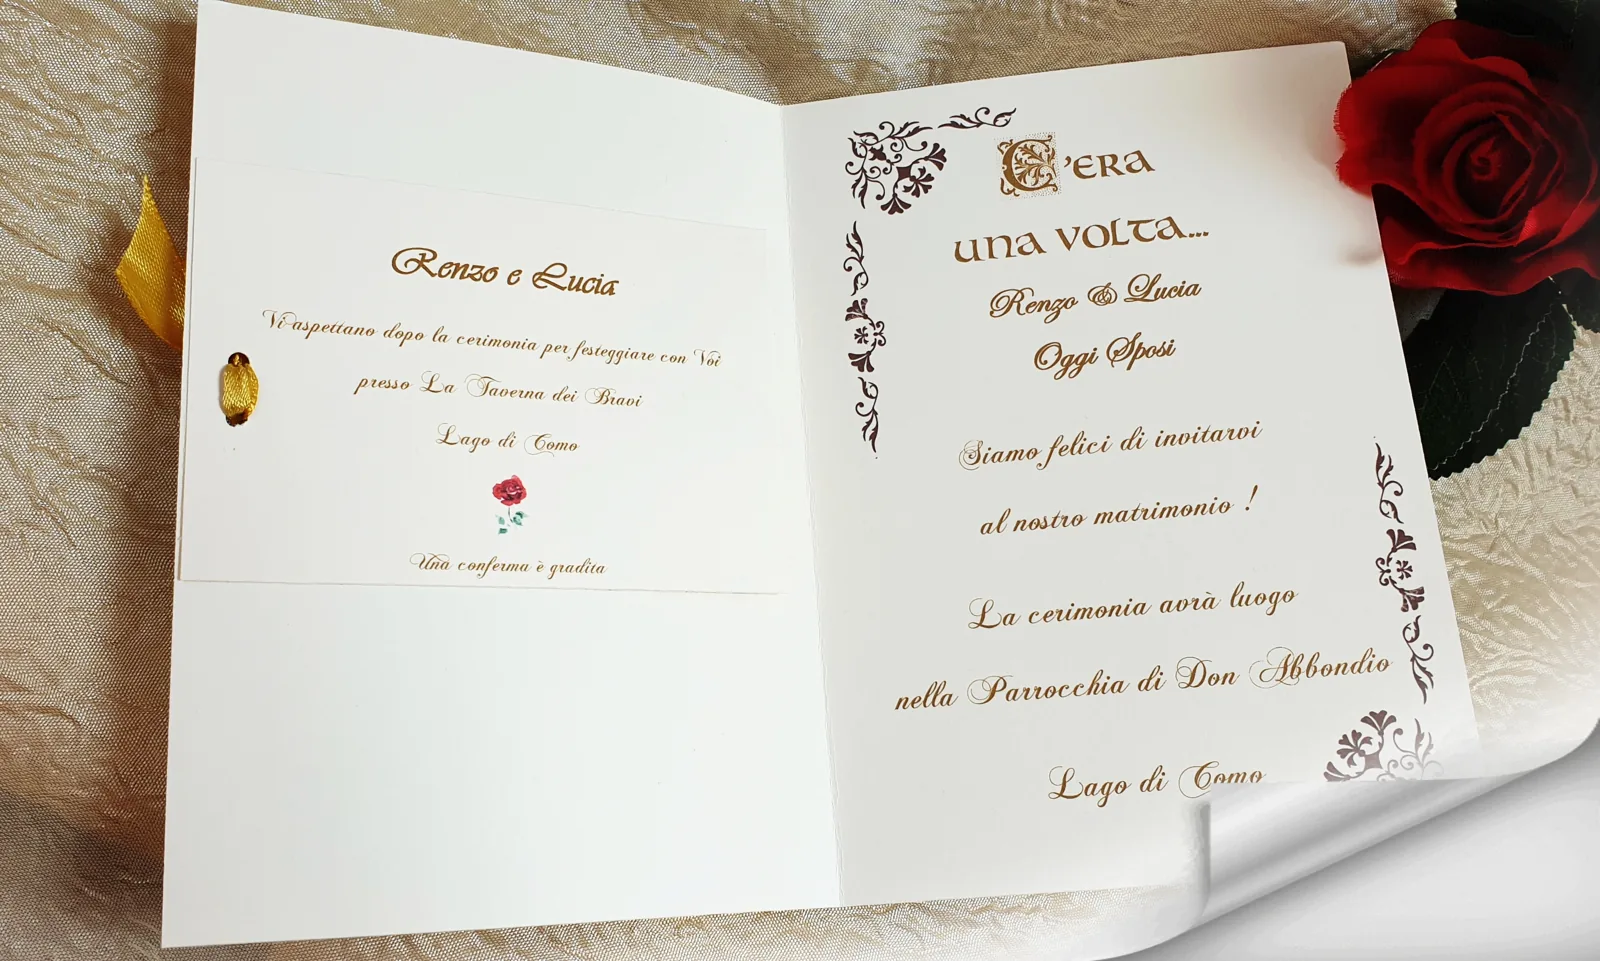 Renzo e Lucia
Vi aspettano dopo la cerimonia per festeggiare con Voi
presso La Taverna dei Bravi
Lago di Como
Una conferma è gradita
C'ERA
UNA VOLTA...
Renzo & Lucia
Oggi Sposi
Siamo felici di invitarvi
al nostro matrimonio !
La cerimonia avrà luogo
nella Parrocchia di Don Abbondio
Lago di Como